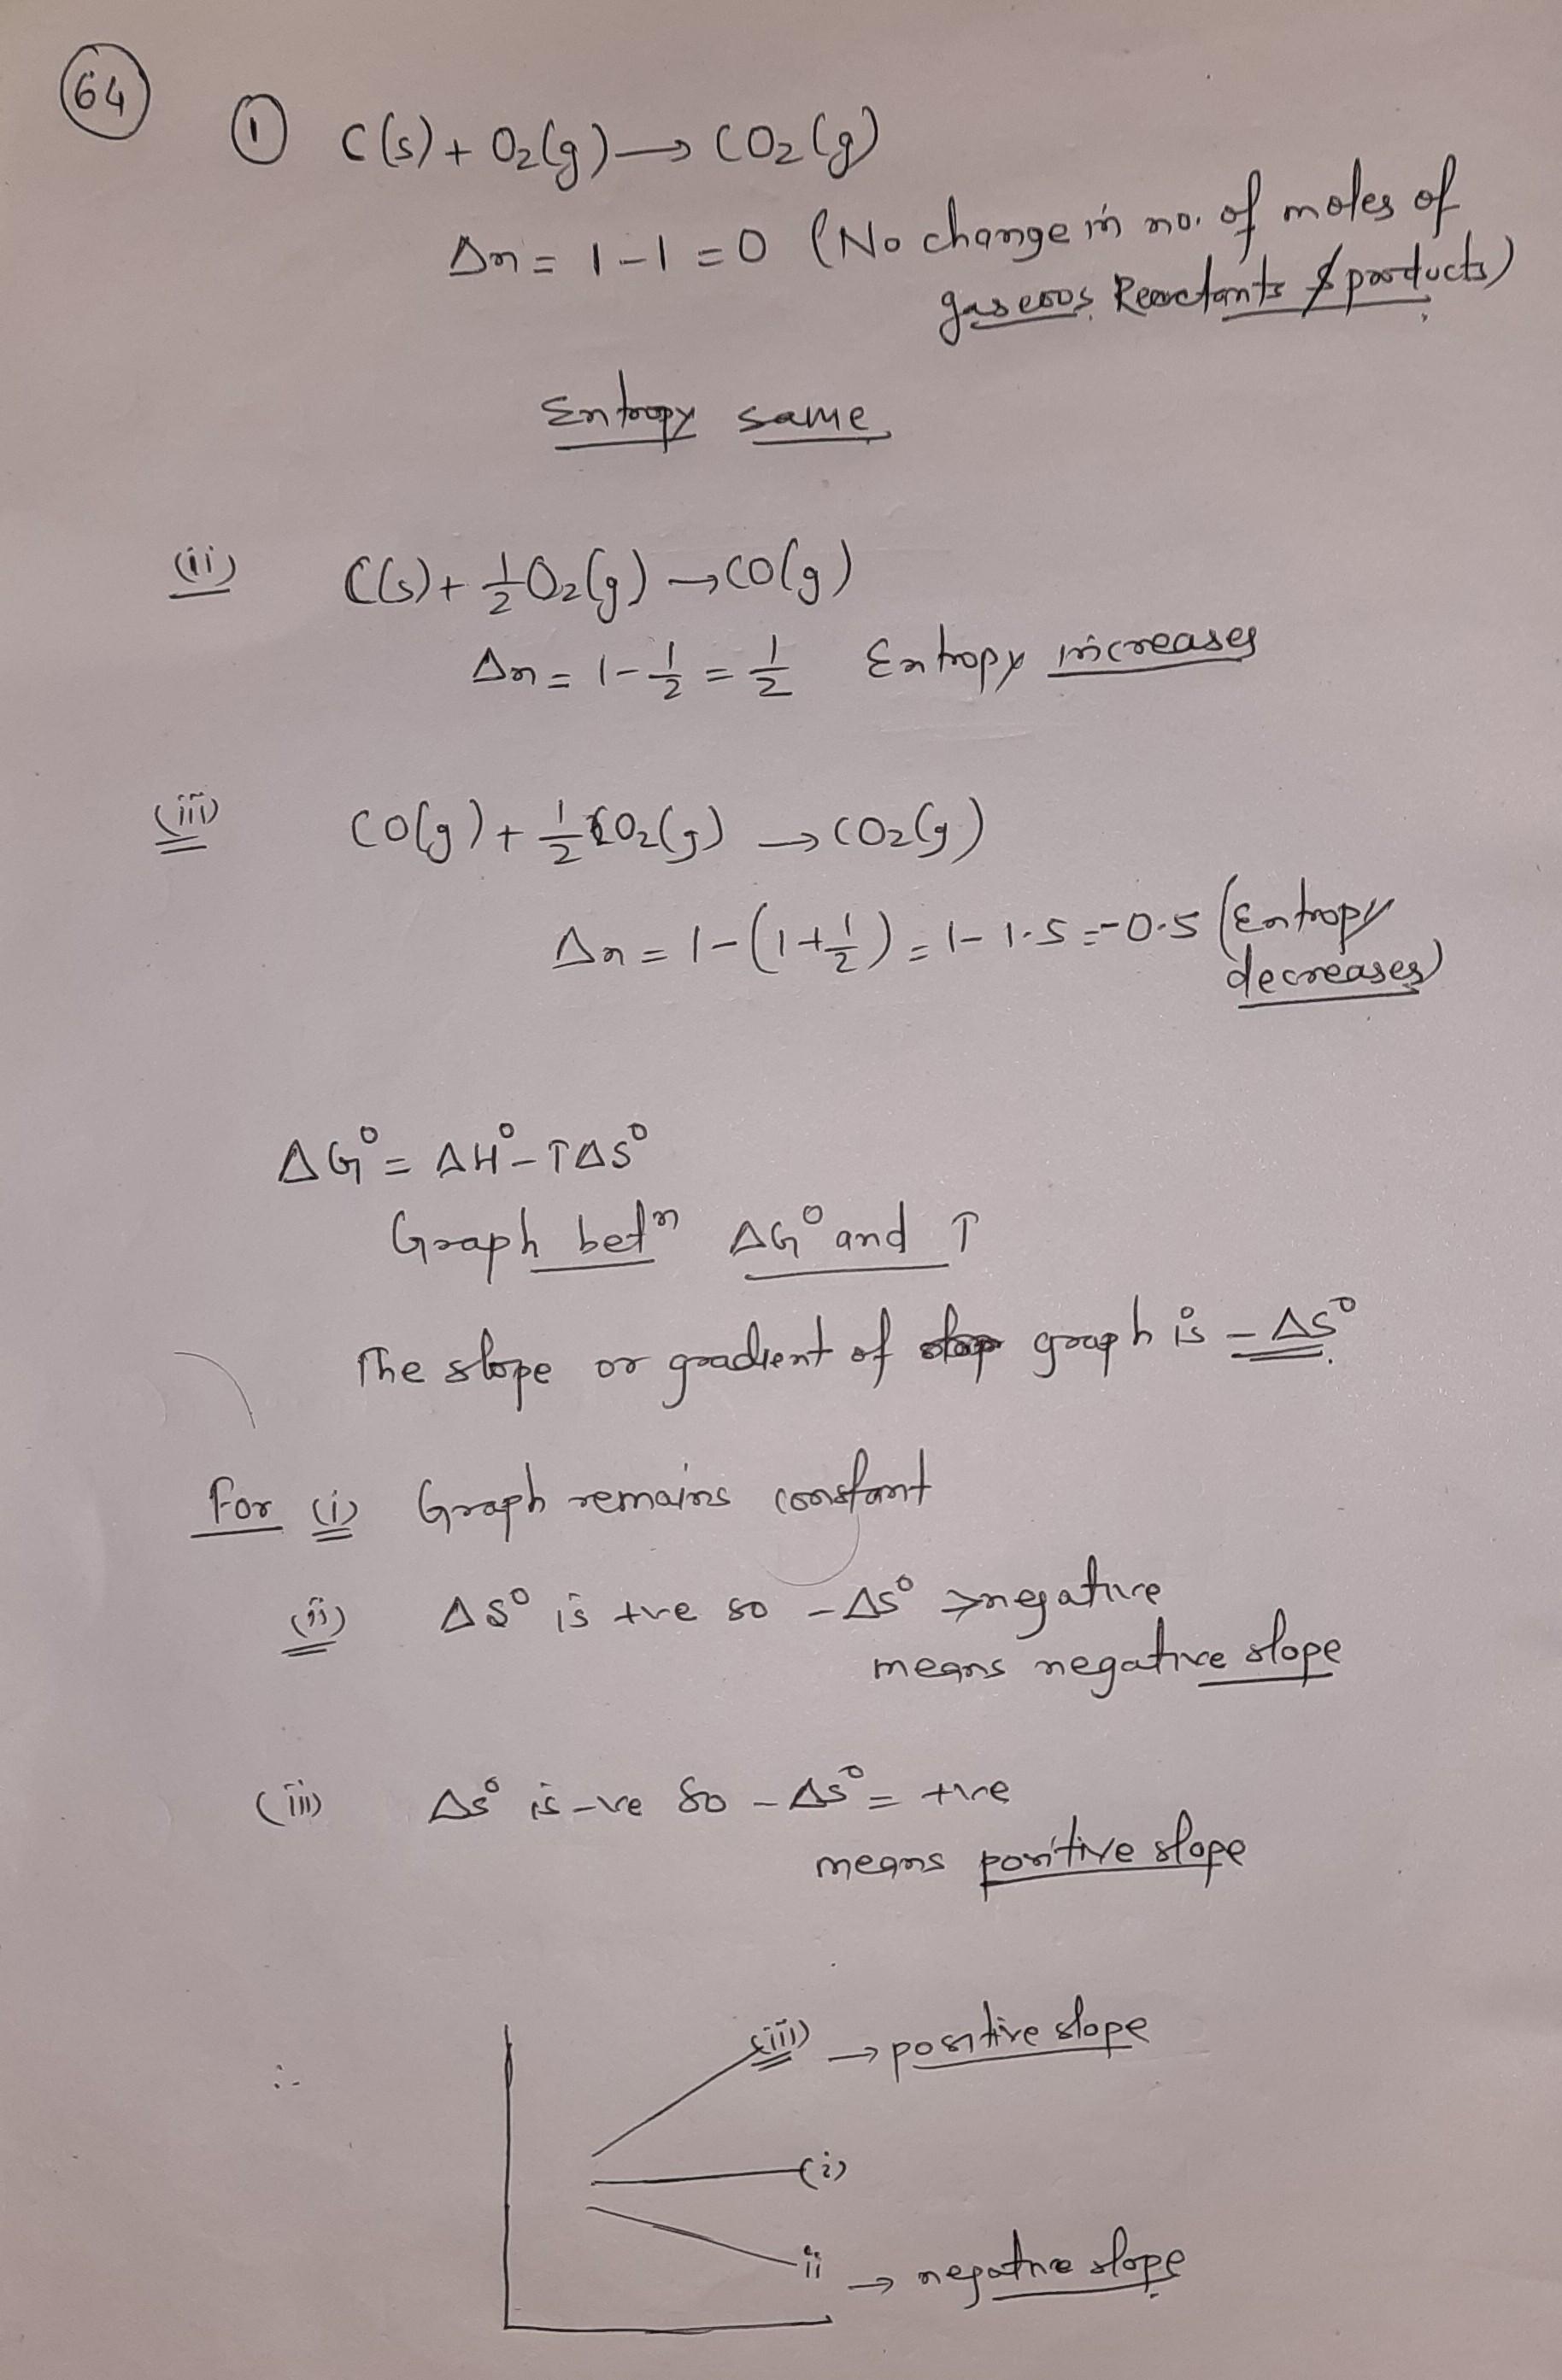 64
① C(s) + O₂(g) → CO₂(g)
Δn = 1 - 1 = 0 (No change in no. of moles of
gaseous Reactants & products)
Entropy same
(ii) C(s) + 1/2 O₂(g) → CO(g)
Δn = 1 - 1/2 = 1/2 Entropy increases
(iii) CO(g) + 1/2 O₂(g) → CO₂(g)
Δn = 1 - (1 + 1/2) = 1 - 1.5 = -0.5 (Entropy
decreases)
ΔG° = ΔH° - TΔS°
Graph betn ΔG° and T
The slope or gradient of graph is - ΔS°.
For (i) Graph remains constant
(ii) ΔS° is +ve so - ΔS° ⇒ negative
means negative slope
(iii) ΔS° is -ve so - ΔS° = +ve
means positive slope
∴
(iii) → positive slope
(i)
ii → negative slope